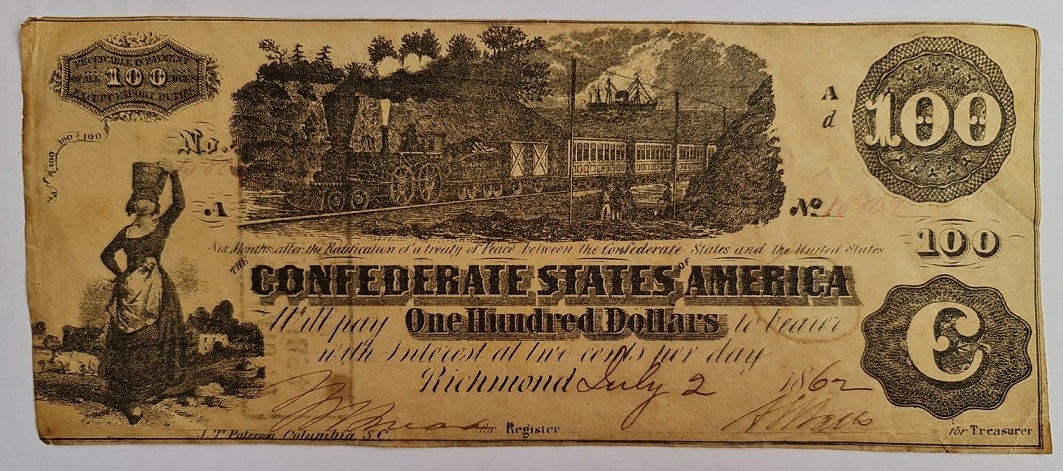 RECEIVABLE IN PAYMENT
OF ALL 100 DUES
EXCEPT EXPORT DUTIES
100
100
No.
A
A
d
100
No
Six Months after the Ratification of a treaty of Peace between the Confederate States and the United States
100
THE
CONFEDERATE STATES of AMERICA
Will pay One Hundred Dollars to bearer
with Interest at two cents per day
C
Richmond July 2 1862
for Register
for Treasurer
J. T. Paterson Columbia S.C.